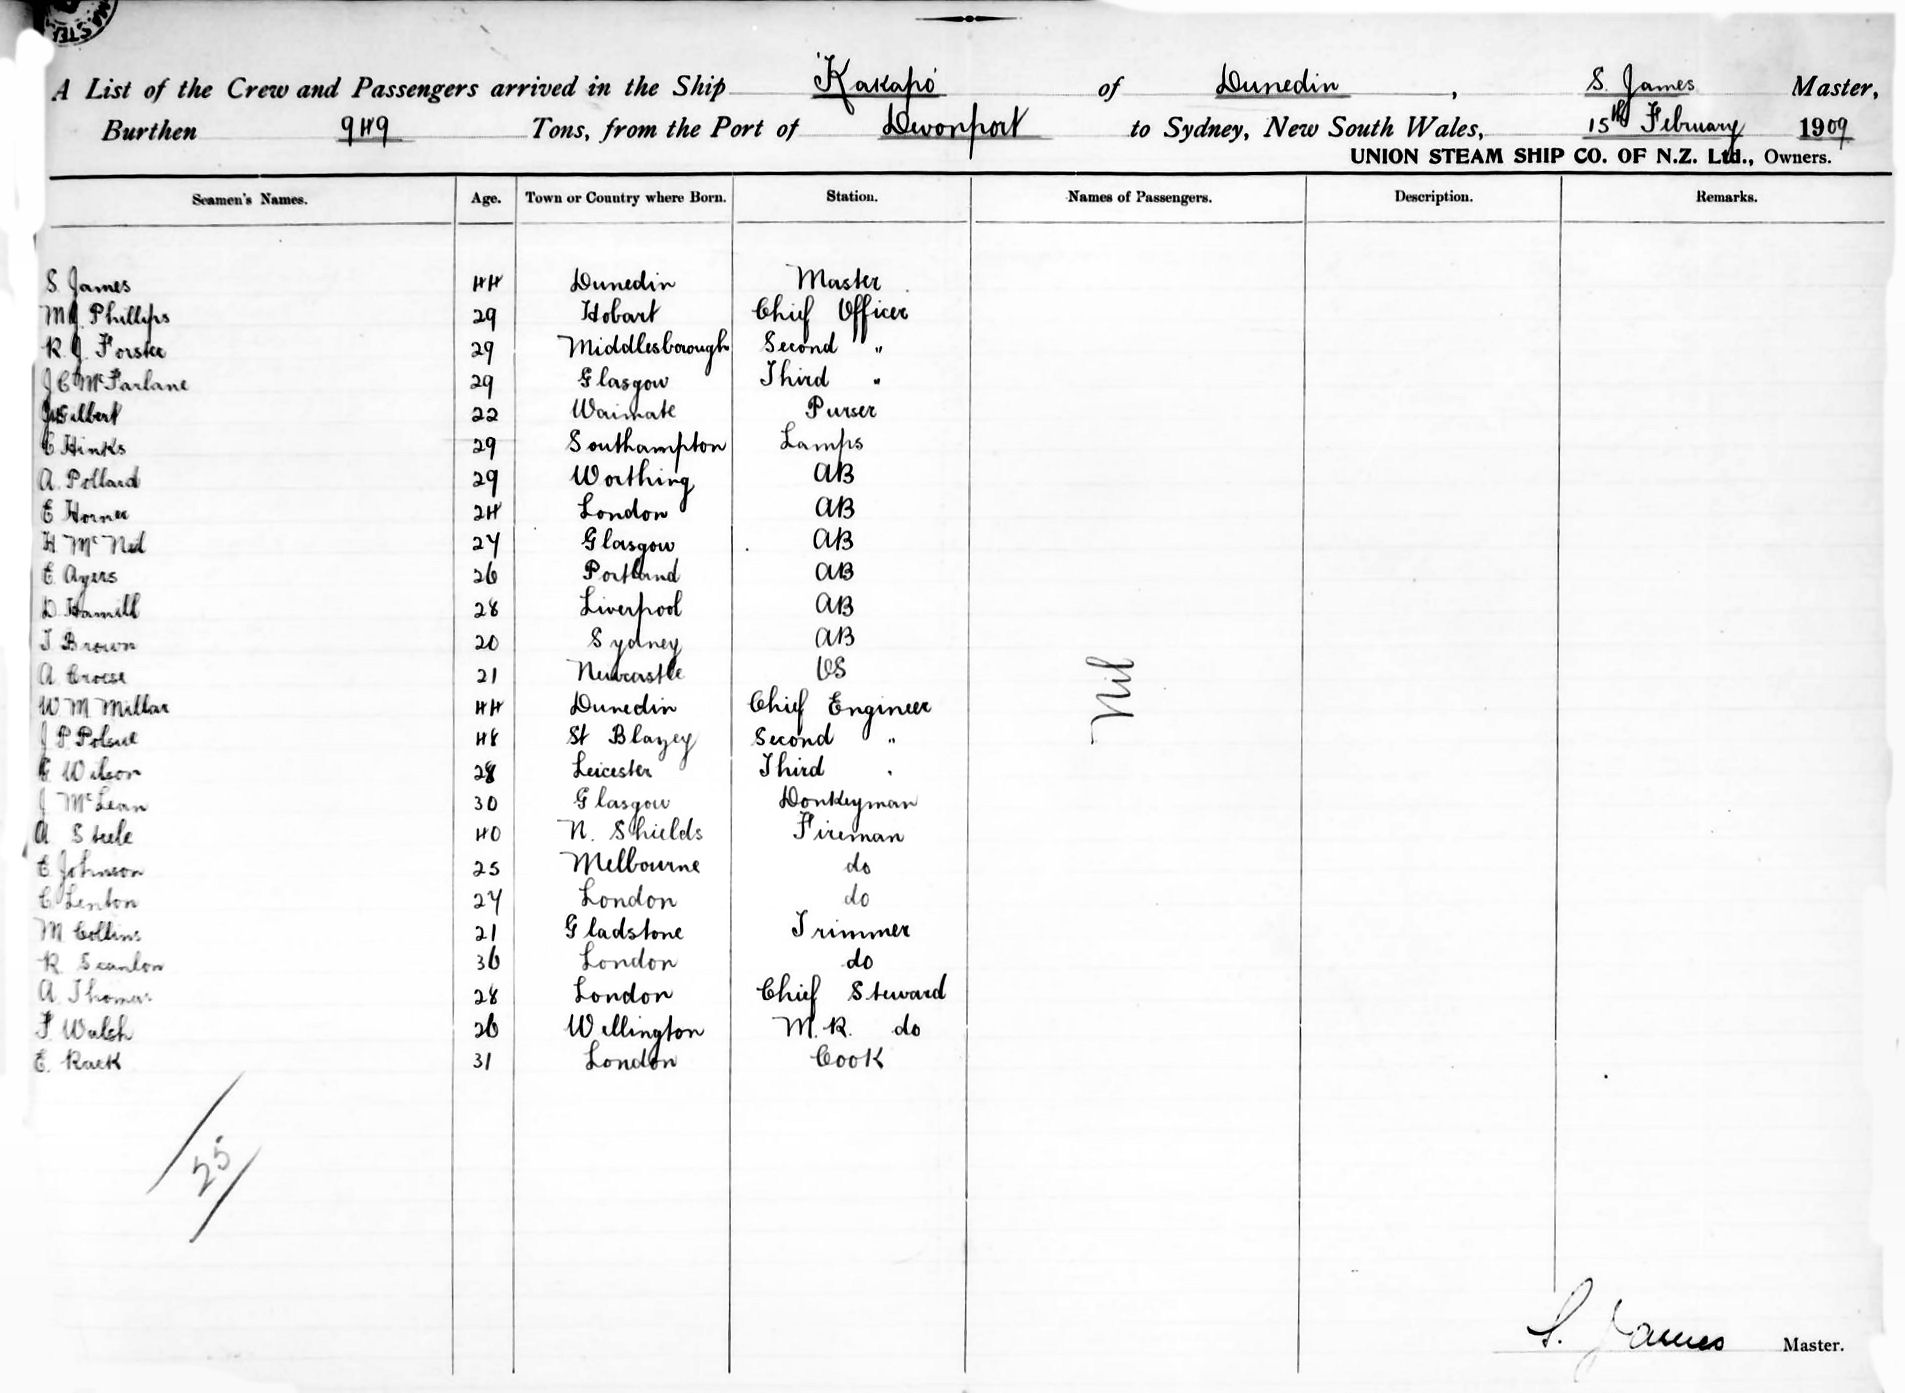 A List of the Crew and Passengers arrived in the Ship "Kakapo" of Dunedin, S. James Master,
Burthen 949 Tons, from the Port of Devonport to Sydney, New South Wales, 15th February 1909
UNION STEAM SHIP CO. OF N.Z. Ltd., Owners.
Seamen's Names. Age. Town or Country where Born. Station. Names of Passengers. Description. Remarks.
S. James 44 Dunedin Master
M J. Phillips 29 Hobart Chief Officer
R. J. Forster 29 Middlesborough Second "
J C McFarlane 29 Glasgow Third "
Gilbert 22 Waimate Purser
C Hinks 29 Southampton Lamps
A. Pollard 29 Worthing AB
E Horner 24 London AB
H McNeil 27 Glasgow AB
E. Ayers 26 Portland AB
D. Hamill 28 Liverpool AB
T Brown 20 Sydney AB
A. Croese 21 Newcastle OS
W M Millar 44 Dunedin Chief Engineer
J P Polsue 48 St Blazey Second "
Wilson 28 Leicester Third "
J McLean 30 Glasgow Donkeyman
A Steele 40 N. Shields Fireman
C. Johnson 25 Melbourne do
C Lenton 27 London do
M Collins 21 Gladstone Trimmer
R. Scanlon 36 London do
A. Thomas 28 London Chief Steward
F. Walsh 26 Wellington M.R. do
E. Rack 31 London Cook
Nil
25
S. James Master.